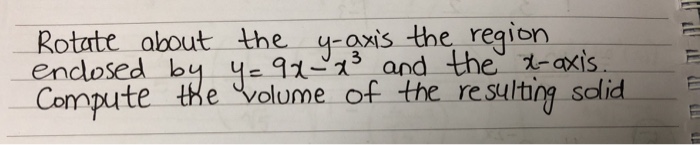 Rotate about the y-axis the region
enclosed by y=9x-x³ and the x-axis.
Compute the volume of the resulting solid